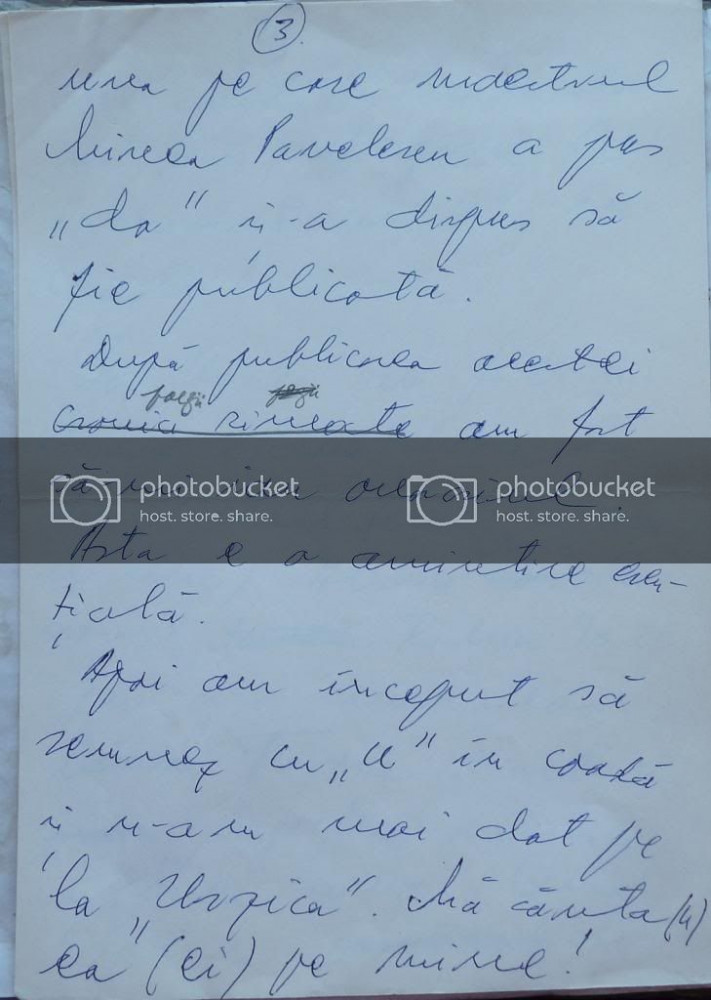 3
una pe care maestrul
Mircea Pavelescu a pus
„da" și-a dispus să
fie publicată.
După publicarea acestei
poezii
cronici rimate am fost
să-mi iau onorariul.
photobucket photobucket
host. store. share. host. store. share.
Asta e o amintire esen-
țială.
Apoi am început să
semnez cu „U" în coadă
și n-am mai dat pe
la „Urzica". Mă căuta(u)
ea (ei) pe mine!